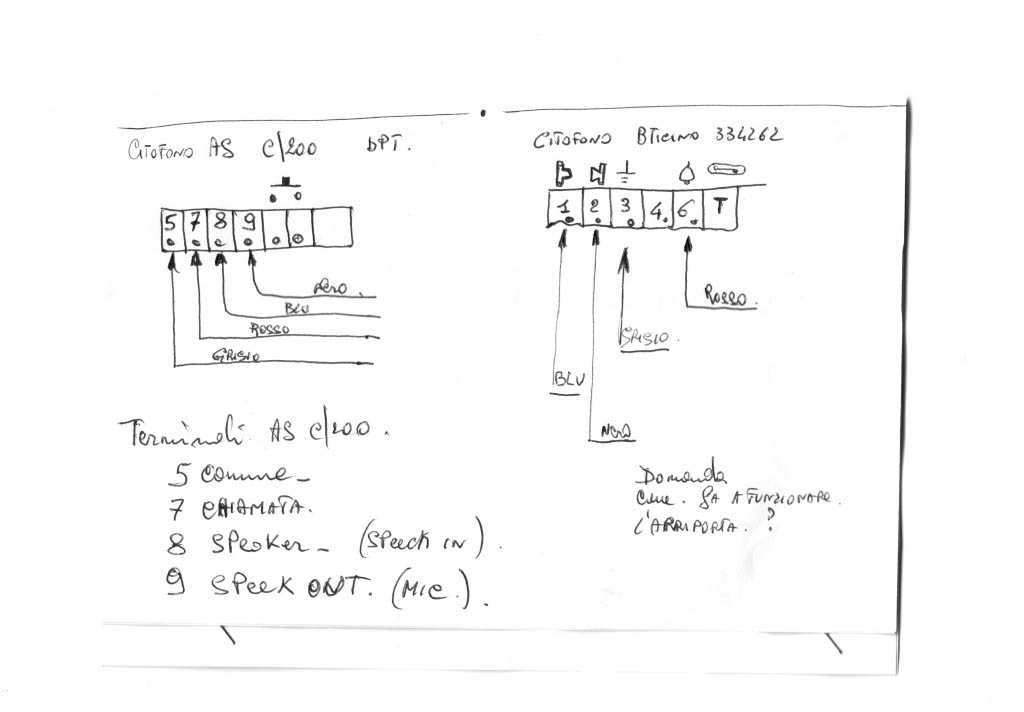 CITOFONO AS C/200 DPT.
5 7 8 9
NERO
BLU
ROSSO
GRISIO
Terminali AS C/200.
5 Comune -
7 CHIAMATA.
8 SPeaker - (SPeeck IN).
9 SPeeK OUT. (MIC.).
CITOFONO BTICINO 334262
1 2 3 4. 6. T
ROSSO.
GRISIO.
BLU
NERO
Domanda
Come. Fa A FUNZIONARE.
L'APRIPORTA. ?